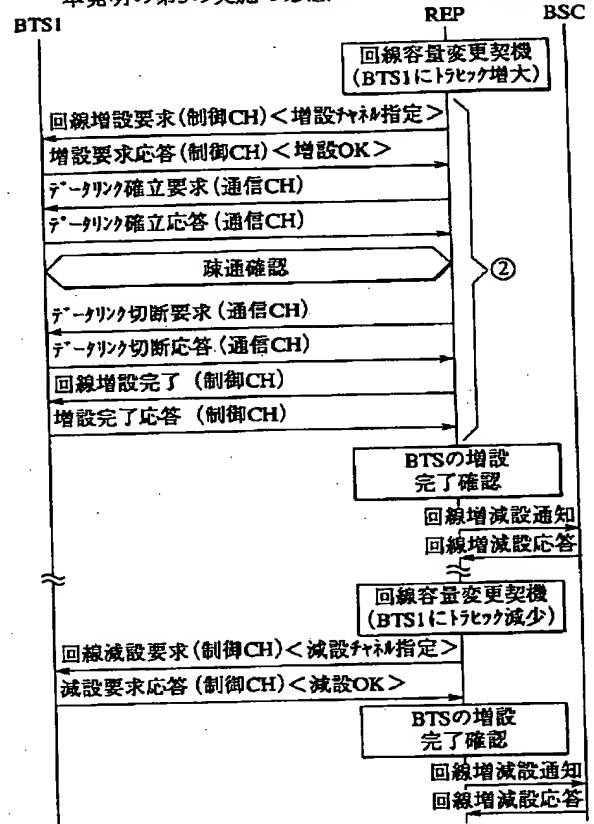 BTS1
REP
BSC
回線容量変更契機
(BTS1にトラヒック増大)
回線増設要求(制御CH)<増設チャネル指定>
増設要求応答(制御CH)<増設OK>
データリンク確立要求(通信CH)
データリンク確立応答(通信CH)
疎通確認
②
データリンク切断要求(通信CH)
データリンク切断応答(通信CH)
回線増設完了(制御CH)
増設完了応答(制御CH)
BTSの増設
完了確認
回線増減設通知
回線増減設応答
回線容量変更契機
(BTS1にトラヒック減少)
回線減設要求(制御CH)<減設チャネル指定>
減設要求応答(制御CH)<減設OK>
BTSの増設
完了確認
回線増減設通知
回線増減設応答